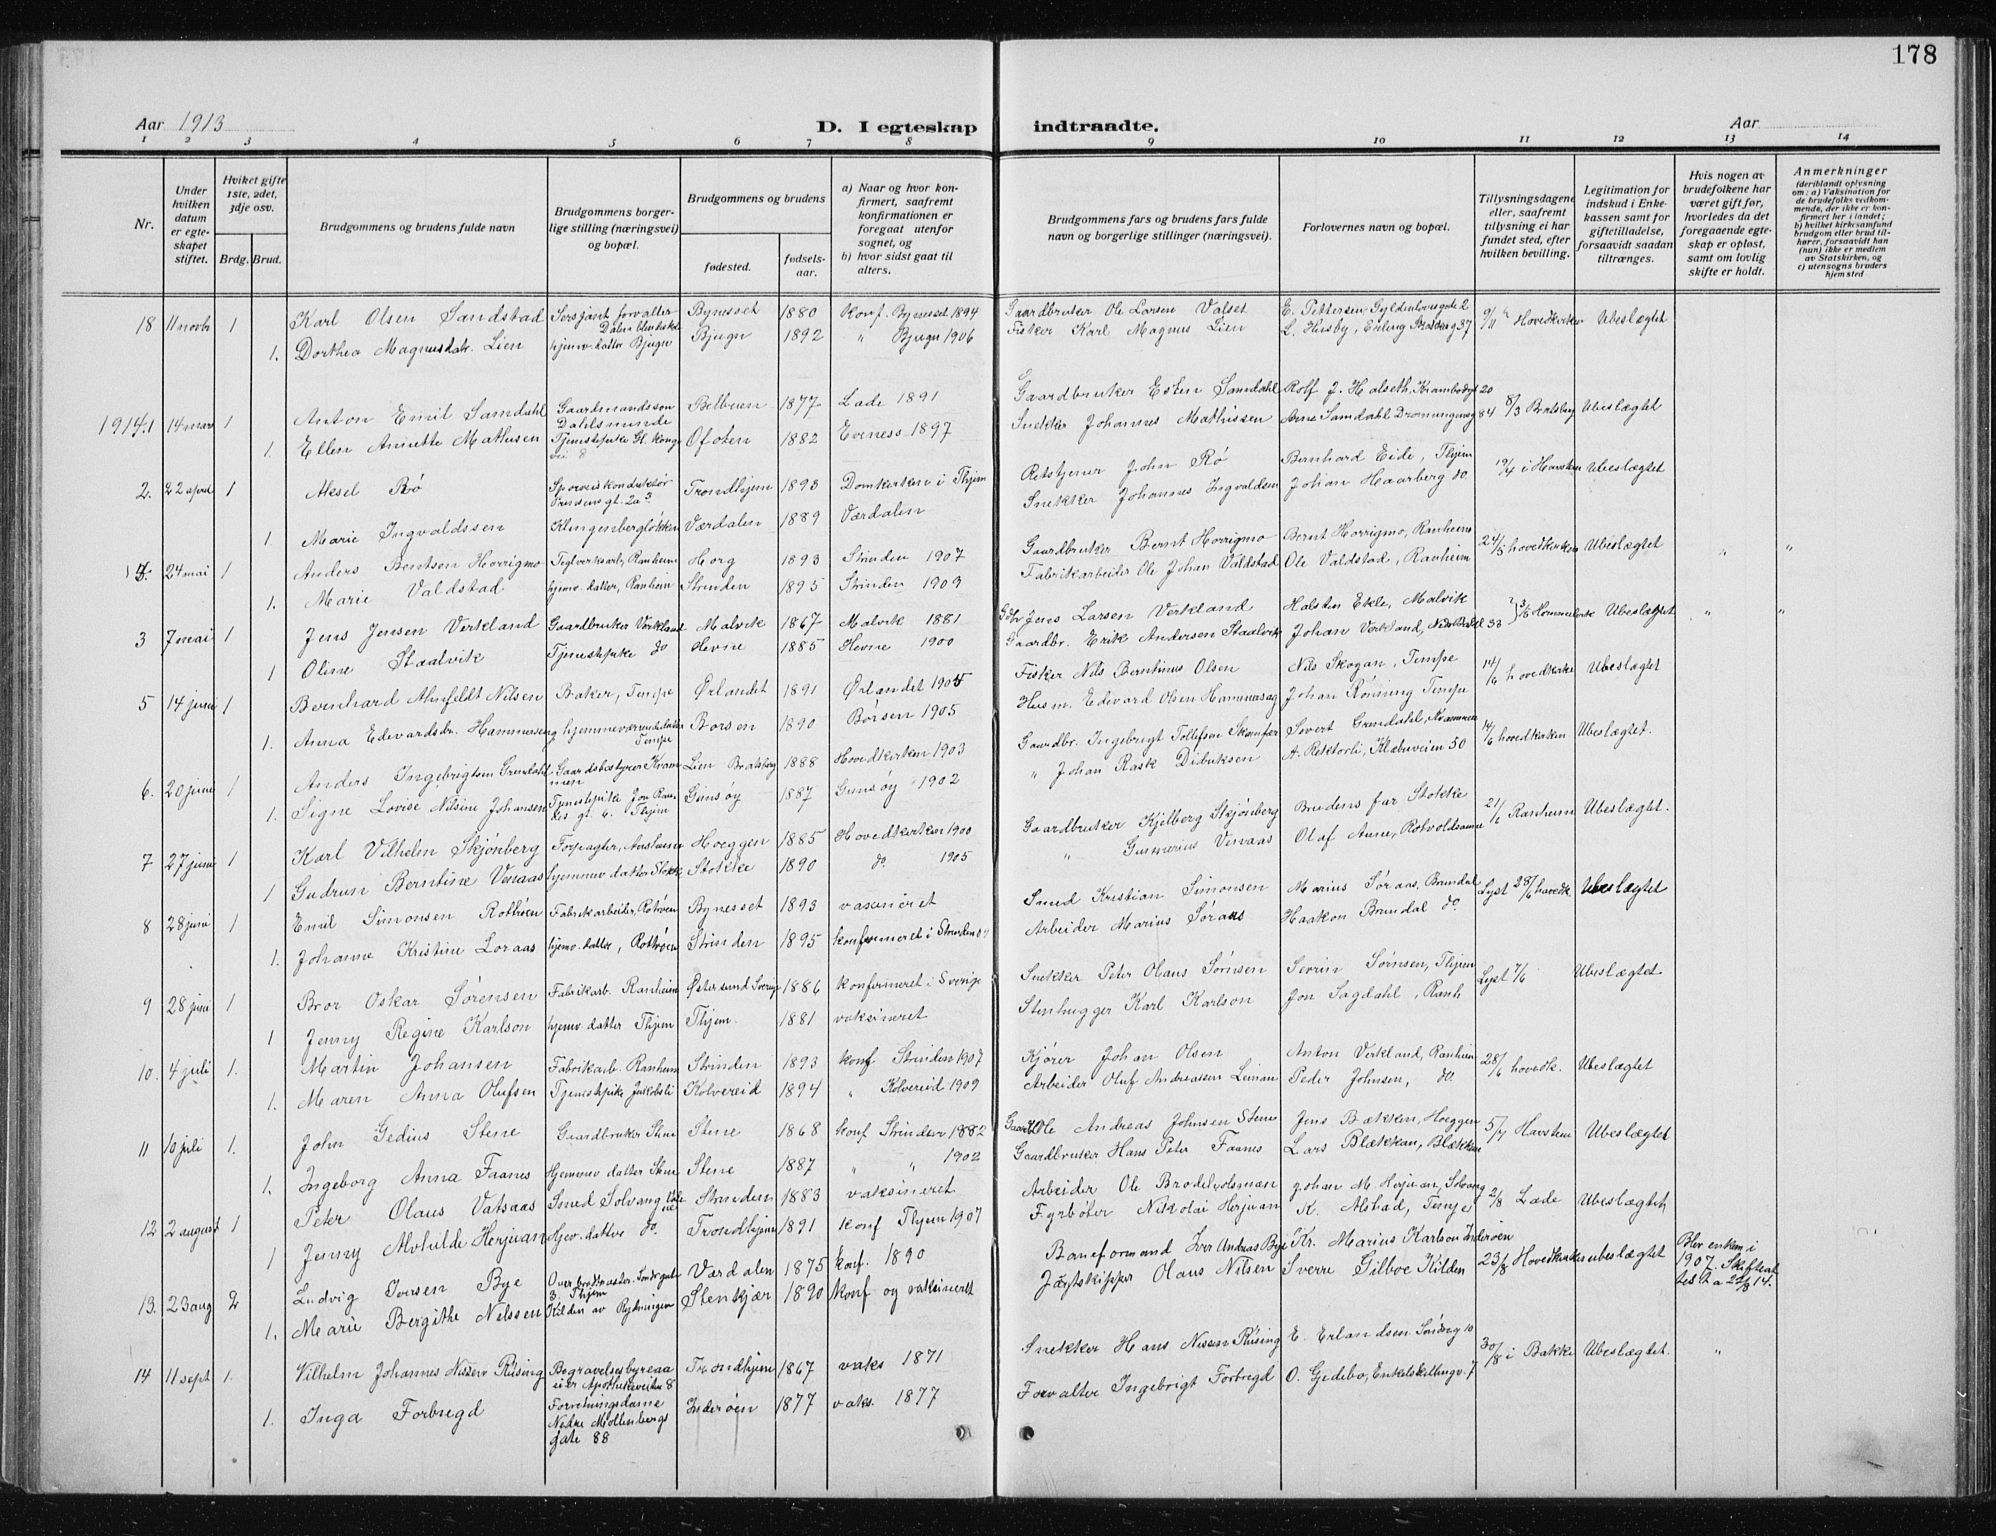 178
Aar 1913
D. I egteskap indtraadte.
Aar
1 2 3 4 5 6 7 8 9 10 11 12 13 14
Nr.
Under hvilken datum er egteskapet stiftet.
Hviket gifte 1ste, 2det, 3dje osv.
Brdg. Brud.
Brudgommens og brudens fulde navn
Brudgommens borgerlige stilling (næringsvei) og bopæl.
Brudgommens og brudens
fødested.
fødselsaar.
a) Naar og hvor konfirmert, saafremt konfirmationen er foregaat utenfor sognet, og
b) hvor sidst gaat til alters.
Brudgommens fars og brudens fars fulde navn og borgerlige stillinger (næringsvei).
Forlovernes navn og bopæl.
Tillysningsdagene eller, saafremt tillysning ei har fundet sted, efter hvilken bevilling.
Legitimation for indskud i Enkekassen samt for giftetilladelse, forsaavidt saadan tiltrænges.
Hvis nogen av brudefolkene har været gift før, hvorledes da det foregaaende egteskap er opløst, samt om lovlig skifte er holdt.
Anmerkninger (deriblandt oplysning om: a) Vaksination for de brudefolks vedkommende, der ikke er konfirmert her i landet; b) hvilket kirkesamfund brudgom eller brud tilhører, forsaavidt han (hun) ikke er medlem av Statskirken, og c) utensogns bruders hjemsted
18 11 novbr 1 Karl Olsen Sandstad Sersjant forvalter Bynesset 1880 Konf. Bynesset 1894 Gaardbruker Ole Larsen Valset E. Pettersen, Gyldenløvesgade 2 9/11 Hovedkirken Ubeslægtet
1. Dorthea Magnusdatr. Lien hjemv. datter Bjugn Bjugn 1892 " Bjugn 1906 Fisker Karl Magnus Lien L. Husby, Erling 37
1914. 1 14 mars 1 Anton Emil Samdahl Gaardmandssøn Dahlsminde 1877 Lade 1891 Gaardbruker Esten Samdahl Rolf J. Halseth, Krambodgt 20 8/3 Bratsberg Ubeslægtet
1. Ellen Annette Mathisen Tjenestepike Gl. kongevei 8 Ofoten 1882 Eveness 1897 Snekker Johannes Mathissen Arne Samdahl 84
2. 22 april 1 Aksel Rö Sporveiskonduktør Trondhjem 1893 Domkirken i Thjem Retstjener John Rö Bernhard Eide, Thjem 19/4 i Havstein Ubeslægtet
1 Marie Ingvaldssen Klingenbergløkken Værdalen 1889 Værdalen Snekker Johannes Ingvaldsen Johan Haarberg do
4. 24 mai 1 Anders Berntsen Horrigmo Teglverkarb, Ranheim Horg 1893 Strinden 1907 Gaardbruker Bernt Horrigmo Bernt Horrigmo, Ranheim 24/5 hovedkirken Ubeslægtet " "
1. Marie Valdstad hjemv. datter, Ranheim Strinden 1895 Strinden 1909 Fabrikarbeider Ole Johan Valdstad Ole Valdstad, Ranheim
3 7 mai 1 Jens Jensen Verkland Gaardbruker Verkland Malvik 1867 Malvik 1881 Gbr Jens Larsen Verkland Halsten Ekle, Malvik Hommelvik Ubeslægtet " "
1 Oline Staalvik Tjenestepike do Hevne 1885 Hevne 1900 Gaardbr. Erik Andersen Staalvik Johan Verkland, 33
5 14 juni 1 Bernhard Ahnfeldt Nilsen Baker, Tempe Ørlandet 1891 Ørlandet 1905 Fisker Nils Berntinus Olsen Nils Skogan, Tempe 14/6 hovedkirke Ubeslægtet
1. Anna Edevardsdr. Hammerseng hjemmeværende datter Tempe Børsen 1890 Børsen 1905 Husm. Edevard Olsen Hammersag Johan Rønning Tempe
6. 20 juni 1 Anders Ingebrigtsen Grendahl Gaardsbestyrer Lien Bratsberg 1888 Hovedkirken 1903 Gaardbr. Ingebrigt Tollefsen Skamfer Sivert Grendahl, 14/6 hovedkirken Ubeslægtet.
1. Signe Lovise Nilsine Johansen Tjenestepike Thjem Gimsøy 1887 Gimsøy 1902 " Johan Rask Didriksen A. Rektorli, Klæbuveien 50
7 27 juni 1 Karl Vilhelm Skjönberg Forpagter, Hoeggen 1885 Hovedkirken 1900 Gaardbruker Kjelberg Skjönberg Brudens far Stokke 21/6 Ranheim Ubeslægtet.
1 Gudrun Berntine Venaas hjemmev datter Stokke Stokke 1890 do 1905 " Gunnerius Venaas Olaf Anne,
8 28 juni 1 Emil Simonsen Rotvøen Fabrikarbeider, Rotvøen Bynesset 1893 vaxineret Smed Kristian Simonsen Marius Søraas, Brundal Lyst 28/6 hovedk. Ubeslægtet
1. Johanne Kristine Loraas hjemv. datter, Rotvøen Strinden 1895 konfirmeret i Strinden 09 Arbeider Marius Søraas Haakon Brundal do.
9 28 juni 1 Bror Oskar Sørensen Fabrikarb. Ranheim Østersund Sverige 1886 konfirmeret i Sverige Snekker Peter Olaus Sørnsen Severin Sørnsen, Thjem Lyst 7/6 Ubeslægtet
1 Jenny Regine Karlson hjemv. datter Thjem Thjem. 1881 vaksineret Stenhugger Karl Karlson Jon Sagdahl, Ranh
10. 4 juli 1. Martin Johansen Fabrikarb. Ranheim Strinden 1893 konf Strinden 1907 Kjører Johan Olsen Anton Verkland, Ranheim 28/6 hovedk. Ubeslægtet
1. Maren Anna Olufsen Tjenestepike Jakobsli Kolvereid 1894 " Kolvereid 1909 Arbeider Oluf Andreassen Leinan Peder Johnsen, do.
11 10 juli 1. John Gedius Stene Gaardbruker Stene Stene 1868 konf Strinden 1882 Gaardb. Ole Andreas Johnsen Stene Jens Bækken, Hoeggen 5/7 Havstein Ubeslægtet
1. Ingeborg Anna Faanes Hjemmev datter Stene Stene 1887 " " 1902 Gaardbruker Hans Peter Faanes Lars Blækkan, Blækkan
12 2 august 1 Peter Olaus Vatsaas Smed Solvang Strinden 1883 vaksineret Arbeider Ole Brodelvolsman Johan M Herjuan, 2/8 Lade Ubeslægtet
1 Jenny Alvhilde Herjuan Hjev. datter do. Trondhjem 1891 konf Thjem 1907 Fyrbøter Nikolai Herjuan K. Alstad, Tempe
13. 23 aug 2 Ludvig Iversen Bye Thjem Værdalen 1875 konf. 1890 Baneformand Iver Andreas Bye Kr. Marius Karlson Inderøen 23/8 Hovedkirken ubeslægtet Blev enkem i 1907. Skifteattest h a 22/8 14.
1. Marie Bergithe Nilssen Kilden av Stenkjær 1890 konf og vaksineret Jægtskipper Olaus Nilsen Sverre Gilboe Kilden
14 11 sept 1. Vilhelm Johannes Nissen Rüsing Begravelsesbyreaaeier Apothekerveiten 8 Trondhjem 1867 vaks 1871 Snekker Hans Nissen Rüsing E. Erlandsen 10 30/8 i Bakke Ubeslægtet. "
1. Inga Forbregd Forretningsdame Nedre Møllenbergs gate 88 Inderøen 1877 vaks. 1877 Forvalter Ingebrigt Forbregd O. Gjedebo, Enkelskillingv. 7